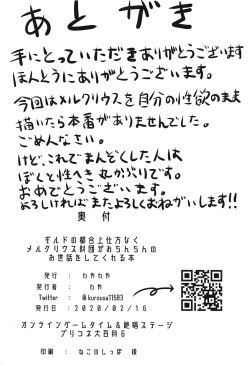 あとがき
手にとっていただきありがとうございます
ほんとうにありがとうございます。
今回はメルクリウスを自分の性欲のまま
描いたら本番がありませんでした。
ごめんなさい。
けど、これでまんぞくした人は
ぼくと性へき丸かぶりです。
おめでとうございます。
よろしければまたよろしくおねがいします!!
奥 付
ギルドの都合上仕方なく
メルクリウス財団がおちんちんの
お世話をしてくれる本
発行 : わやわや
発行者 : わや
Twitter : @kurousa11583
発行日 : 2020/02/16
オンラインゲームタイム&絶唱ステージ
プリコネ大百科6
印刷 : ねこのしっぽ 様